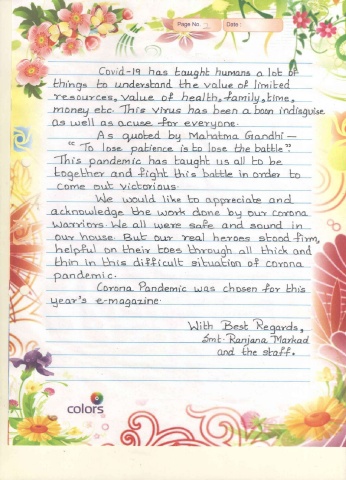 Page No. 2 Date :
Covid-19 has taught humans a lot of
things to understand the value of limited
resources, value of health, family, time,
money etc. This virus has been a boon indisguise
as well as acuse for everyone.
As quoted by Mahatma Gandhi –
“ To lose patience is to lose the battle.”
This pandemic has taught us all to be
together and fight this battle in order to
come out victorious.
We would like to appreciate and
acknowledge the work done by our corona
warriors. We all were safe and sound in
our house. But our real heroes stood firm,
helpful on their toes through all thick and
thin in this difficult situation of corona
pandemic.
Corona Pandemic was chosen for this
year's e-magazine.
With Best Regards,
Smt. Ranjana Markad
and the staff.
colors